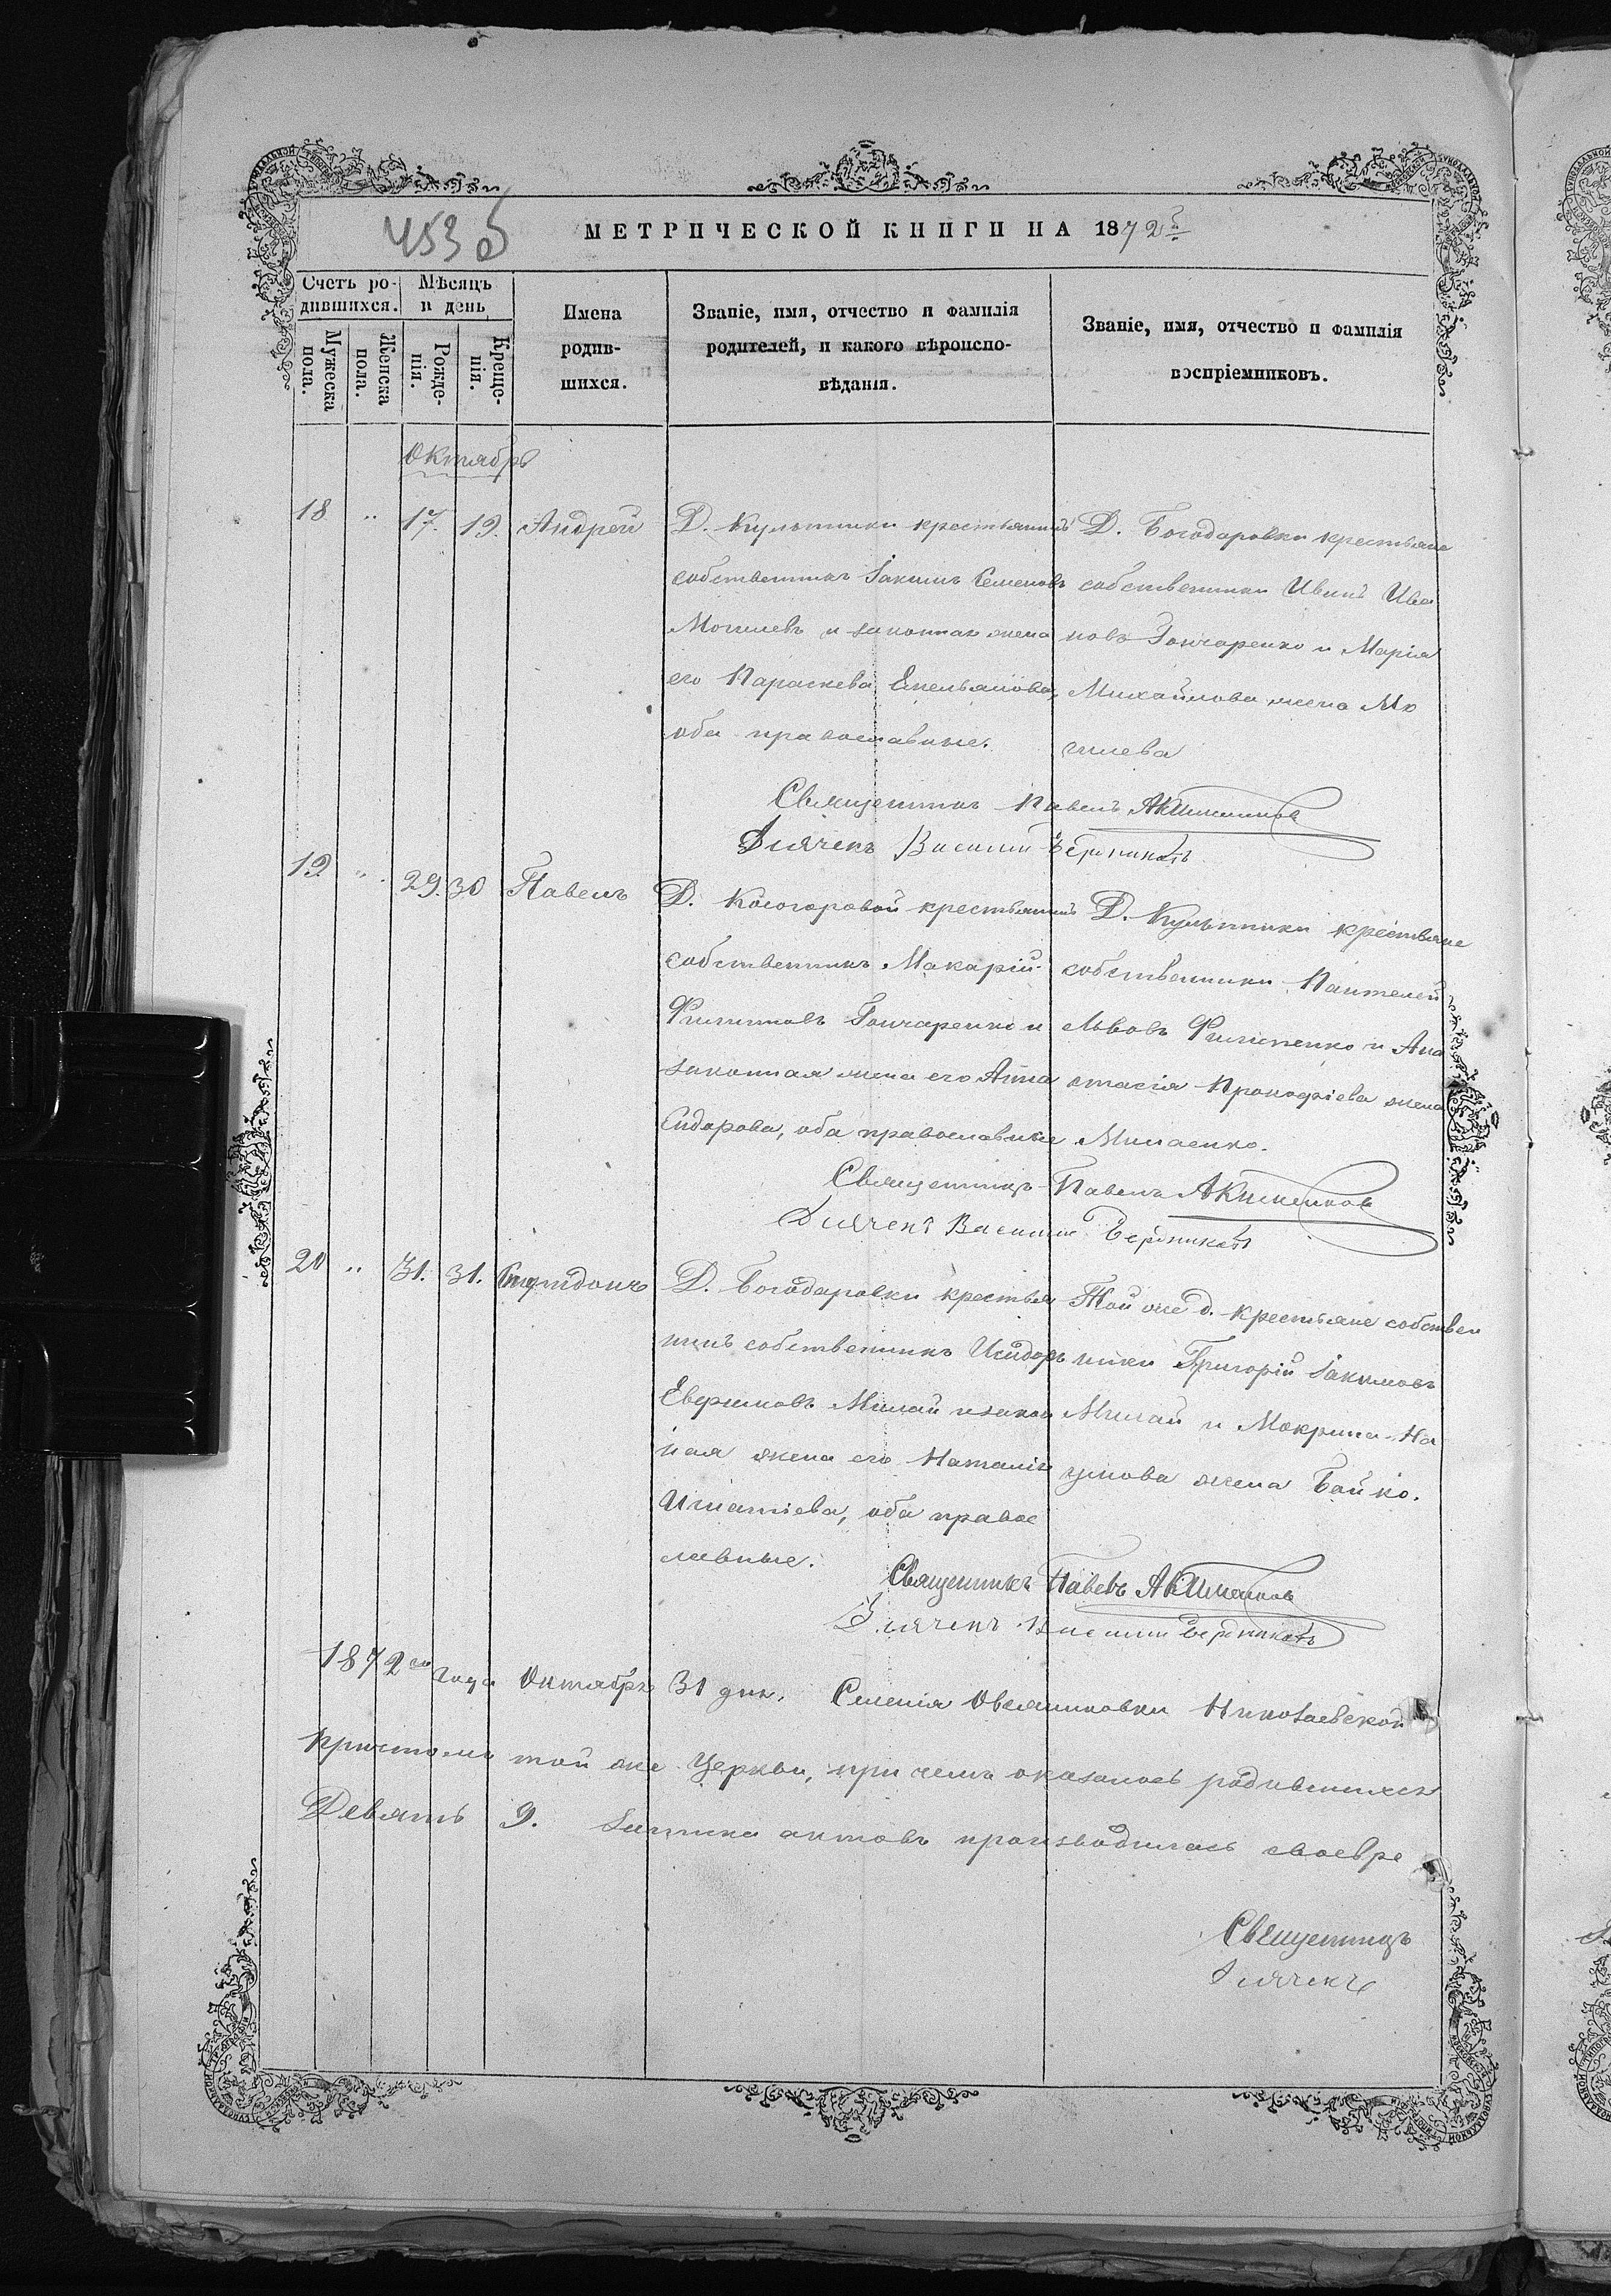 453 об
МЕТРИЧЕСКОЙ КНИГИ НА 1872й
Счетъ родившихся.
Мужеска пола.
Женска пола.
Мѣсяцъ и день
Рожденія.
Крещенія.
Имена родившихся.
Званіе, имя, отчество и фамилія родителей, и какого вѣроисповѣданія.
Званіе, имя, отчество и фамилія воспріемниковъ.
Октябрь
18 „ 17. 19. Андрей
Д. Культики крестьянинъ
собственникъ Іакимъ Семеновъ
Могилевъ и законная жена
его Параскева Емельянова,
оба православные.
Д. Богодаровки крестьяне
собственники Иванъ Ива
новъ Гончаренко и Марія
Михайлова жена Мо
гилева
Священникъ Павелъ Акишенков
Дьячекъ Василий
19 „ 29. 30 Павелъ
Д. Косогоровой крестьянинъ
собственникъ Макарій
Филиповъ Гончаренко и
законная жена его Анна
Сидорова, оба православные
Д. Культики крестьяне
собственники Пантелей
Львовъ Филипенко и Ана
стасія Прокофіева жена
Минаенко.
Священникъ Павелъ Акишенков
Дьячекъ Василий
20 „ 31. 31. Спиридонъ
Д. Богодаровки крестья
нинъ собственникъ Исидоръ
Евфимовъ Милай и закон
ная жена его Наталія
Игнатіева, оба правос
лавные.
Той же д. крестьяне собствен
ники Григорій Іакимовъ
Милай и Макрина На
умова жена Бойко.
Священникъ Павелъ Акишенков
Дьячекъ Василий
1872го года Октября 31 дня. Селенія Овсянниковки Николаевской
причтомъ той же Церкви, при чемъ оказалось родившихся
Девять 9. Записка актовъ производилась своевре
Священникъ
Дьячекъ